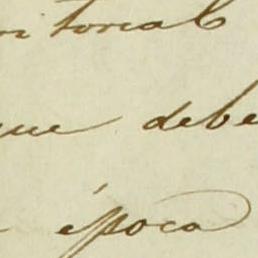 ritorial
que debe
época